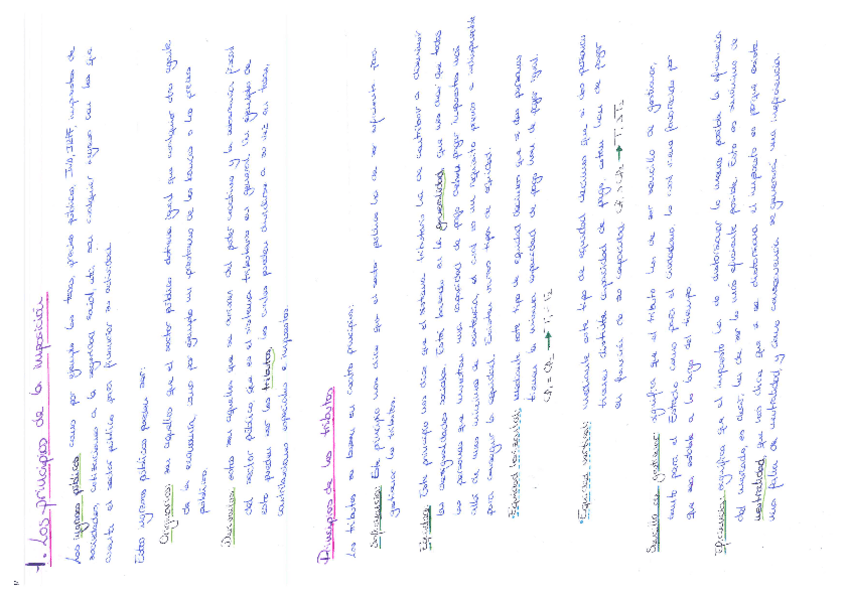 1. Los principios de la imposición
Los ingresos públicos como por ejemplo las tasas, precios públicos, IVA, IRPF, impuestos de
sociedades, cotizaciones a la seguridad social, etc. son cualquier ingreso con los que
cuenta el sector público para financiar su actividad.
Estos ingresos públicos pueden ser:
Originarios, son aquellos que el sector público obtiene igual que cualquier otro agente
de la economía, como por ejemplo un préstamo de los bancos o los precios
públicos.
Derivativos, estos son aquellos que se derivan del poder coactivo y la soberanía fiscal
del sector público, que es el sistema tributario en general. Un ejemplo de
esto pueden ser los tributos, los cuales pueden dividirse a su vez en tasas,
contribuciones especiales e impuestos.
Principios de los tributos
Los tributos se basan en cuatro principios:
Suficiencia: Este principio nos dice que el sector público ha de ser suficiente para
gestionar los tributos.
Equidad: Este principio nos dice que el sistema tributario ha de contribuir a disminuir
las desigualdades sociales. Está basado en la generalidad que nos dice que todas
las personas que muestran una capacidad de pago deben pagar impuestos más
allá de unos mínimos de existencia, el cual es un requisito previo e indispensable
para conseguir la equidad. Existen varios tipos de equidad.
Equidad horizontal: mediante este tipo de equidad decimos que si dos personas
tienen la misma capacidad de pago han de pagar igual.
CP₁ = CP₂ → T₁ = T₂
Equidad vertical: mediante este tipo de equidad decimos que si dos personas
tienen distinta capacidad de pago, estas han de pagar
en función de su capacidad
Sencillo de gestionar: significa que el tributo ha de ser sencillo de gestionar,
tanto para el Estado como para el ciudadano lo cual viene favorecido por
que sea estable a lo largo del tiempo
Eficiencia: significa que el impuesto ha de distorsionar lo menos posible la eficiencia
del mercado, es decir, ha de ser lo más eficiente posible. Esto es sinónimo de
neutralidad, que nos dice que si se distorsiona el impuesto es porque existe
una falta de neutralidad y como consecuencia se generará una ineficiencia.